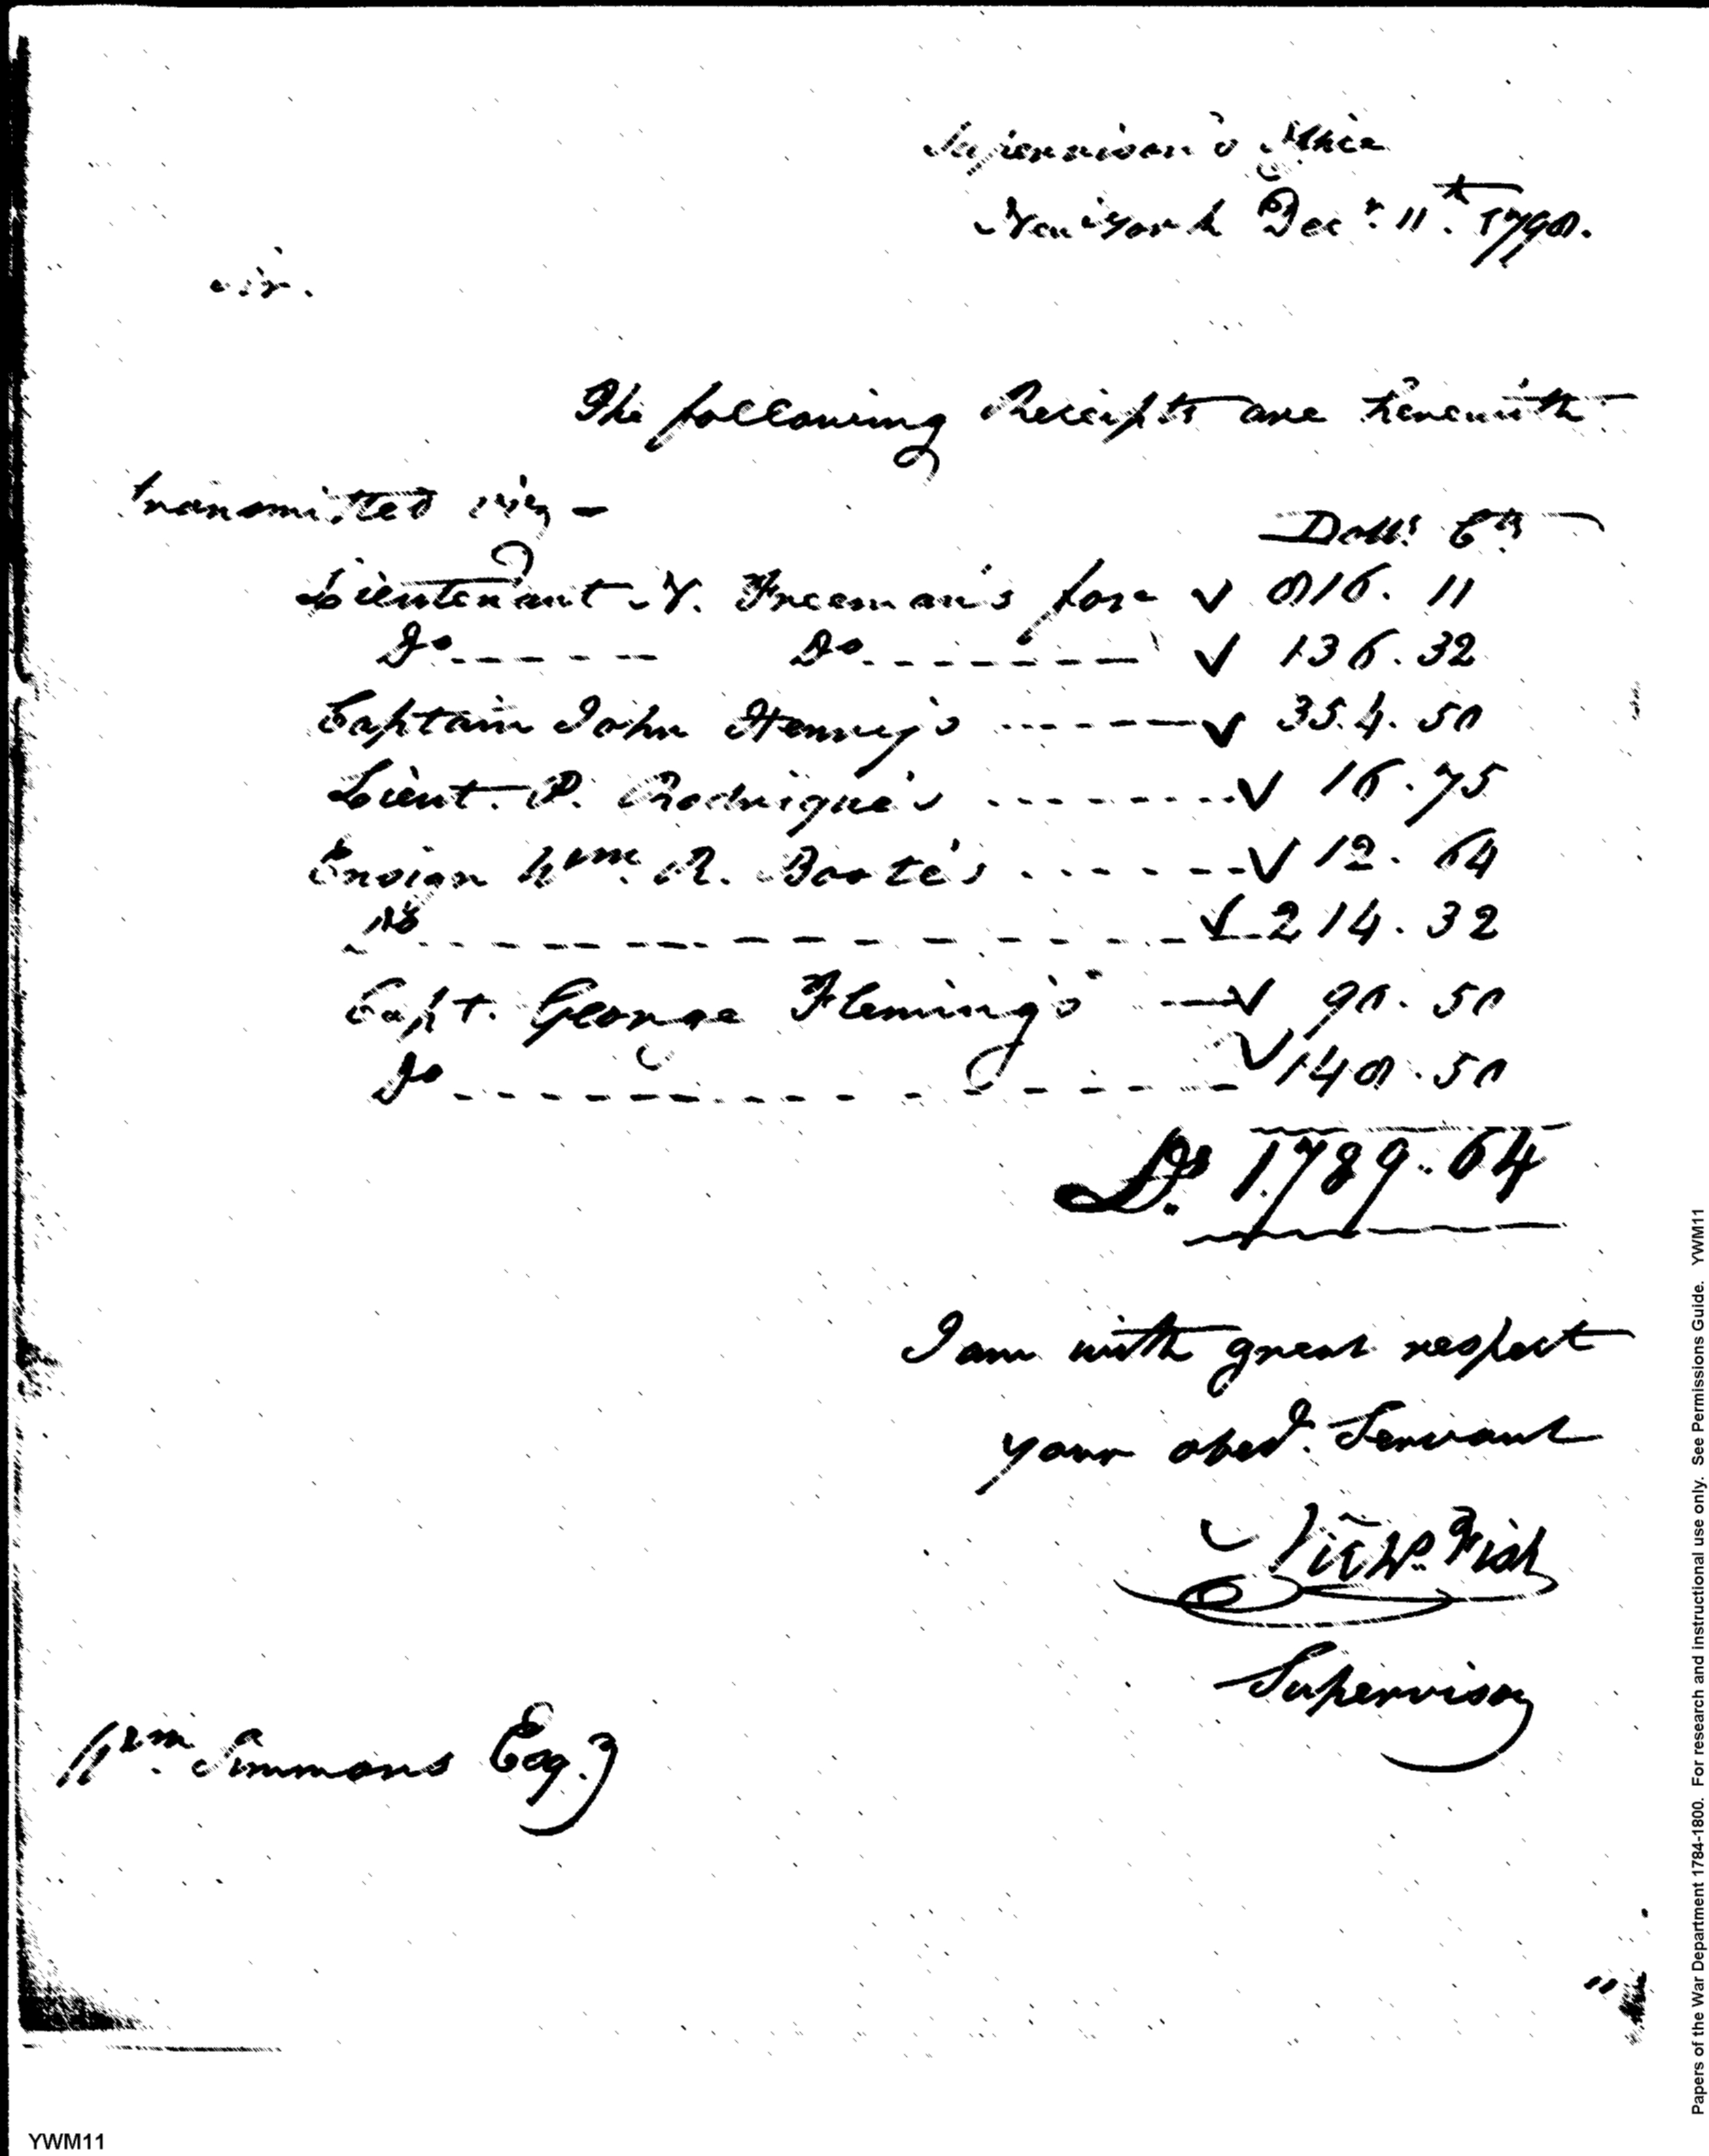 Supervisor's Office
New York Decr. 11th. 1798.
Sir.
The following Receipts are herewith
transmitted viz -
Dolls. Cts
Lieutenant N. Freeman's for ✓ 816. 11
Do ----- Do ------- ✓ 136. 32
Captain John Henry's ------ ✓ 354. 50
Lieut. P. Rodrigue's -------- ✓ 16. 75
Ensign Wm. R. Boote's ------ ✓ 12. 64
Do --------------- ✓ 214. 32
Capt. George Fleming's — ✓ 90. 50
Do --------------- ✓ 148. 50
Ds. 1789. 64
I am with great respect
your obed. Servant
Nichs. Fish
Supervisor
Wm. Simmons Esq.
Papers of the War Department 1784-1800. For research and instructional use only. See Permissions Guide. YWM11
YWM11